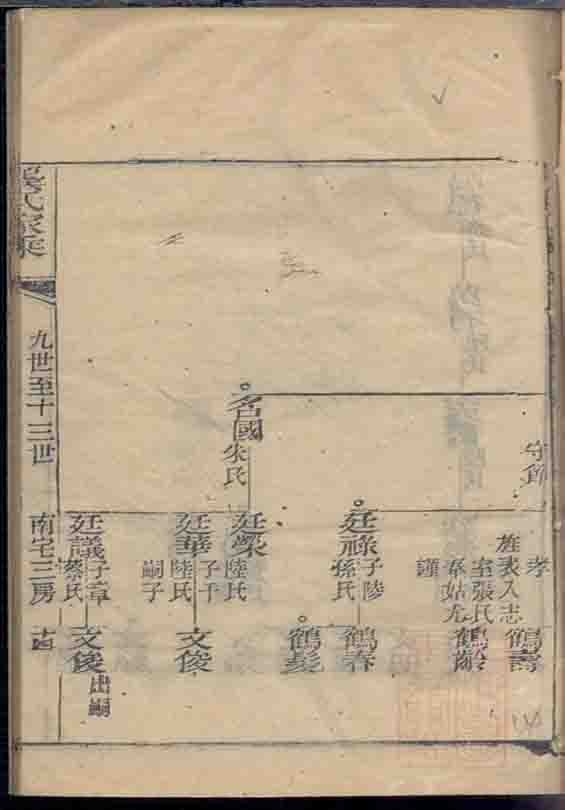 守節
孝
旌表入志
室張氏
奉姑尤
謹
鶴壽
鶴齡
廷祿
子陵
孫氏
鶴春
鶴髮
名國
朱氏
廷榮
陸氏
廷華
子千
陸氏
嗣子
文俊
廷議
子章
蔡氏
文俊
出嗣
氏家乘
九世至十三世
南宅三房